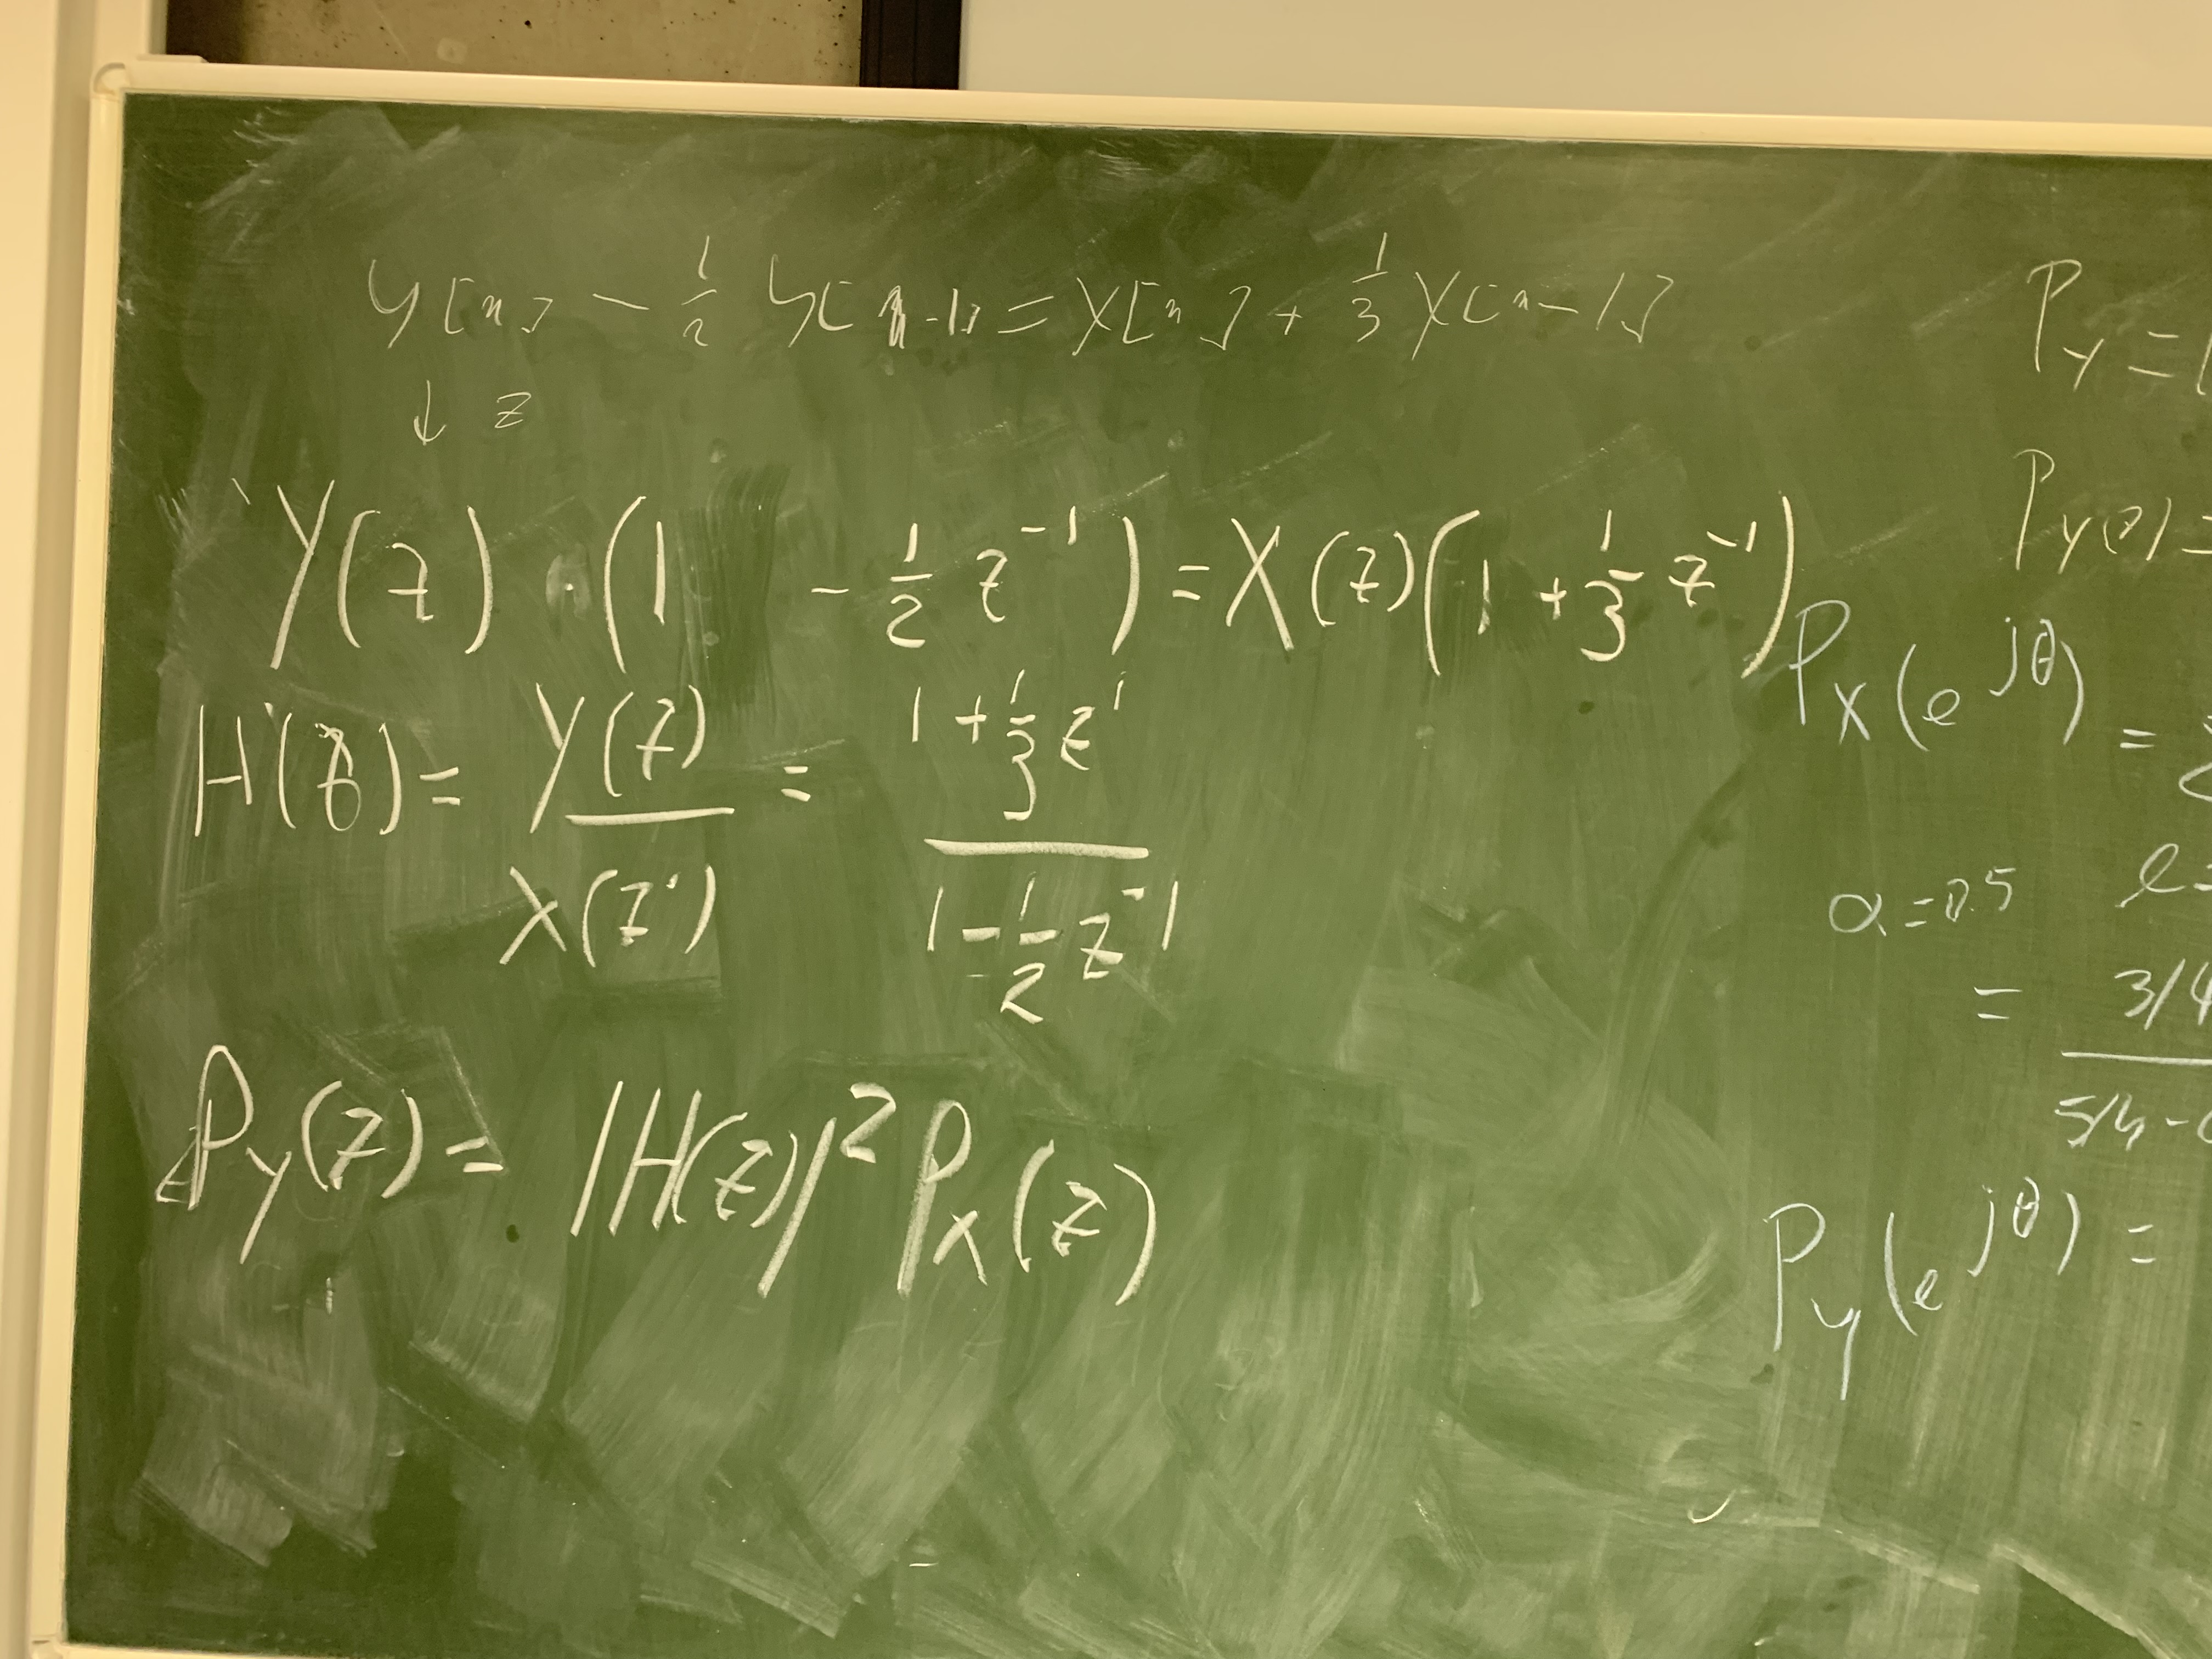 y[n] - 1/2 y[n-1] = x[n] + 1/3 x[n-1]
↓ z
Y(z) · (1 - 1/2 z^-1) = X(z)(1 + 1/3 z^-1)
H(z) = Y(z)/X(z) = (1 + 1/3 z^1)/(1 - 1/2 z^-1)
P_y(z) = |H(z)|^2 P_x(z)
P_y =
P_y(z) =
P_x(e^jθ) =
α = 0.5
= 3/4
5/4 -
P_y(e^jθ) =